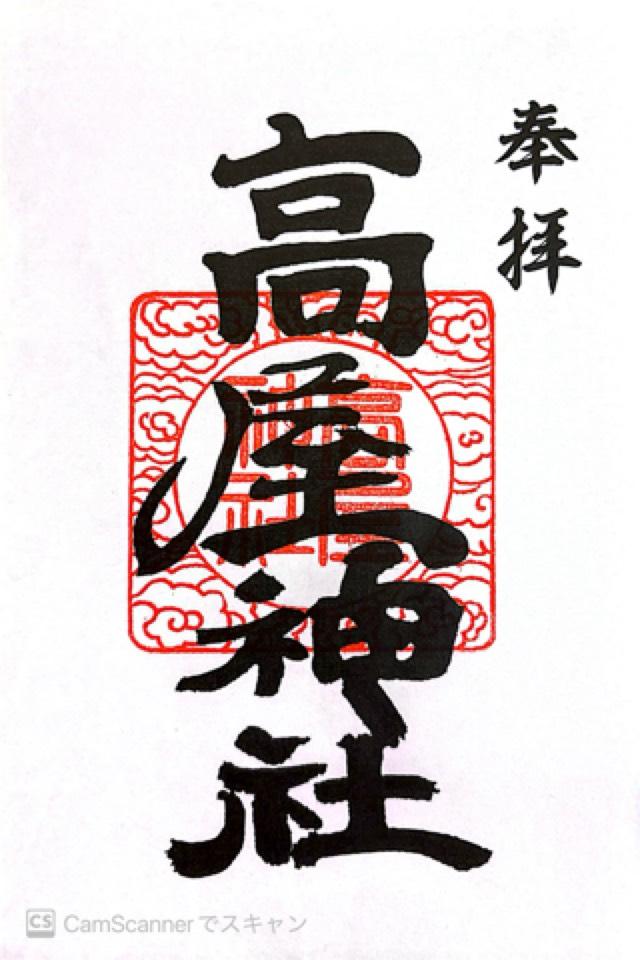 奉拝
高屋神社
高屋神社
CS CamScannerでスキャン